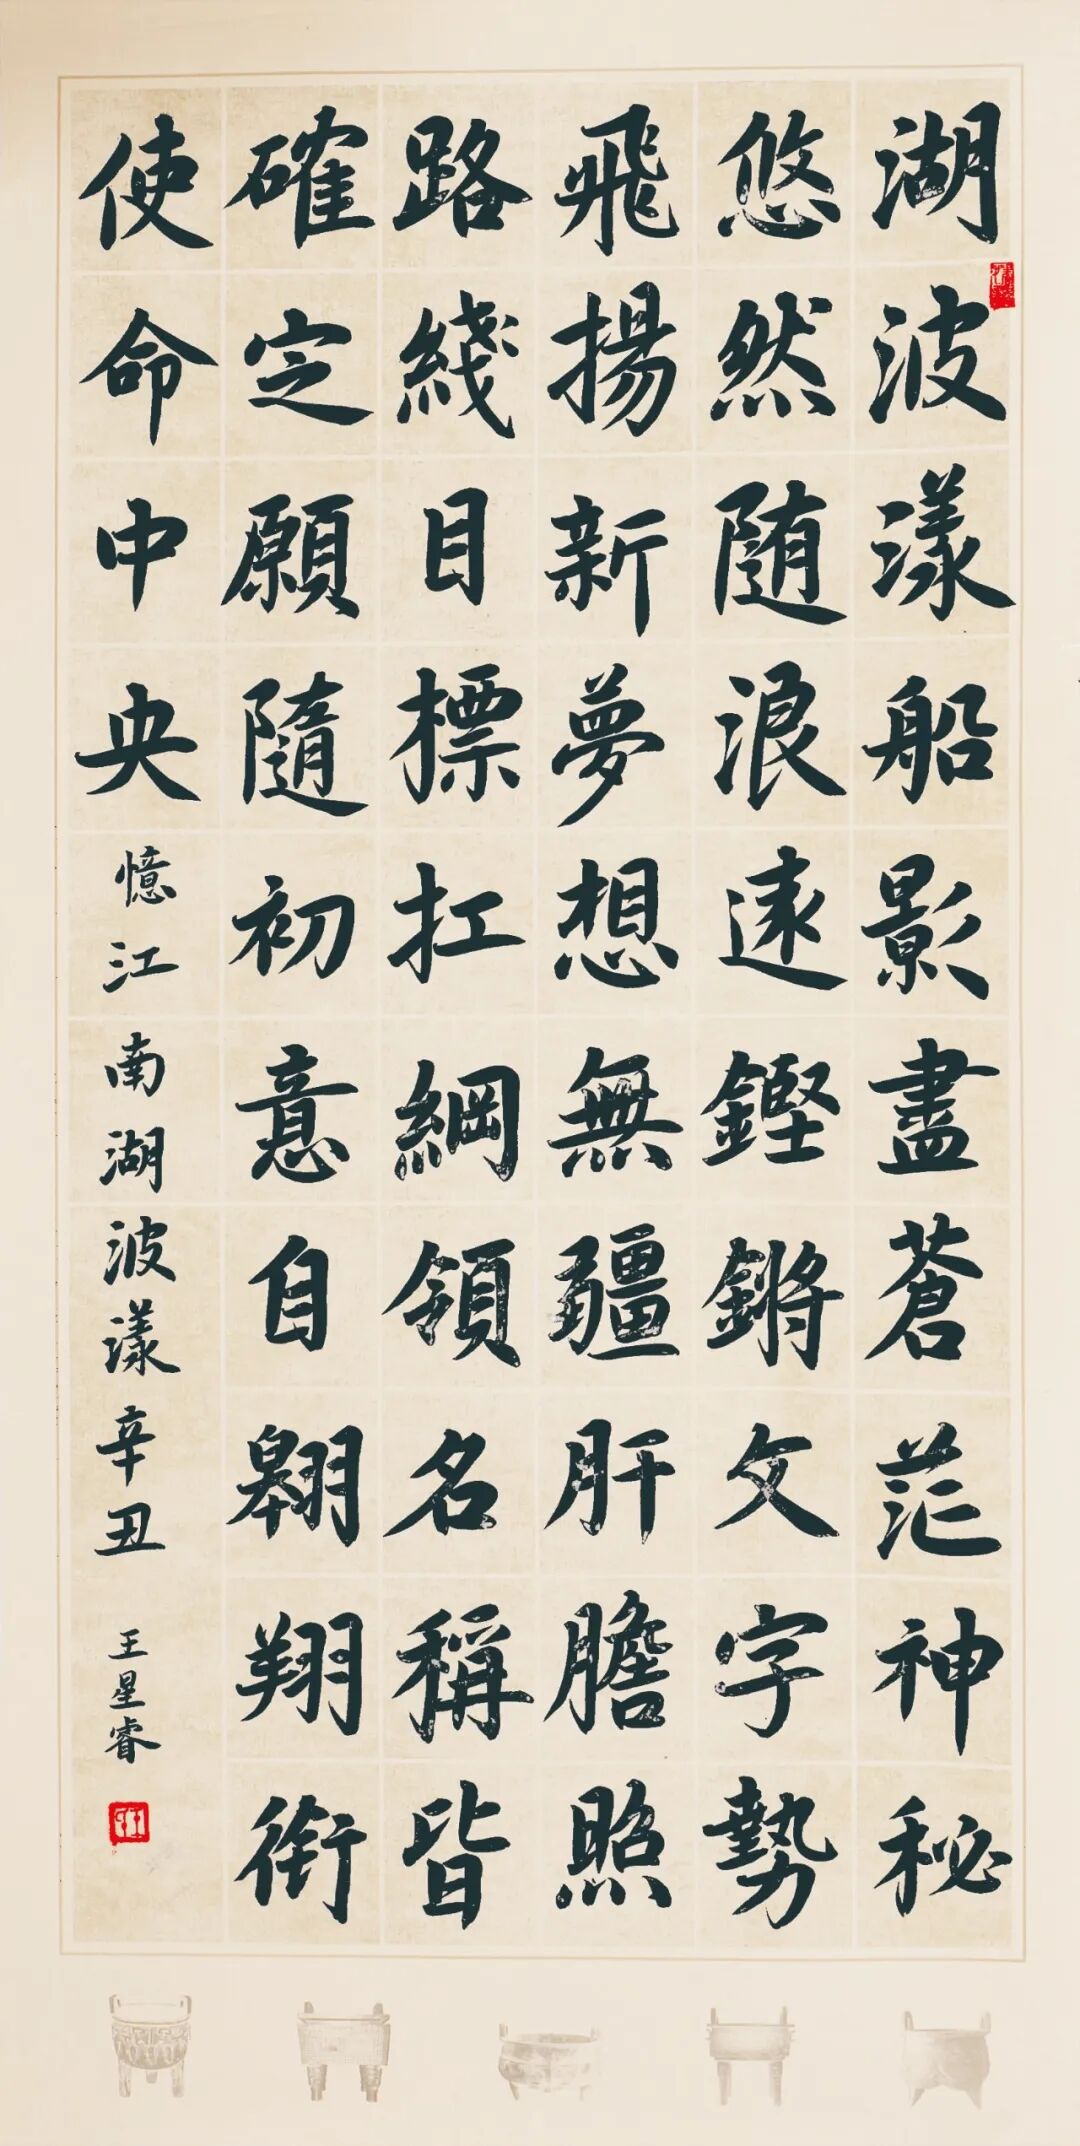 湖波漾船影盡蒼茫神秘
悠然随浪逺鏗鏘文字勢
飛揚新夢想無疆肝膽照
路綫目標扛綱領名稱皆
確定願隨初意自翱翔銜
使命中央
憶江南湖波漾辛丑
王星睿